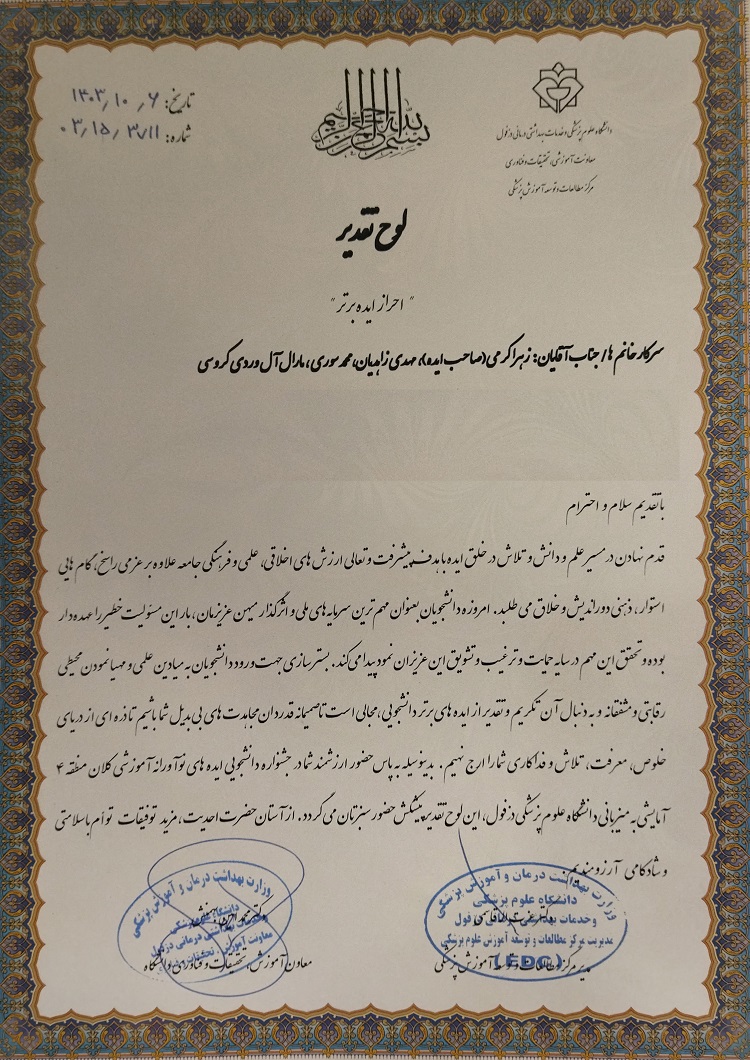 بسم الله الرحمن الرحیم
دانشگاه علوم پزشکی و خدمات بهداشتی درمانی دزفول
معاونت آموزشی، تحقیقات و فناوری
مرکز مطالعات و توسعه آموزش پزشکی
تاریخ: ۱۴۰۳٫۱۰٫۶
شماره: ۰۳٫۱۵٫۳۷۱۱
لوح تقدیر
"احراز ایده برتر"
سرکار خانم ها/ جناب آقایان: زهرا کرمی (صاحب ایده)، مهدی زاهدیان، محمد سوری، مارال آل وردی کروسی
با تقدیم سلام و احترام
قدم نهادن در مسیر علم و دانش و تلاش در خلق ایده با هدف پیشرفت و تعالی ارزش های اخلاقی، علمی و فرهنگی جامعه علاوه بر عزمی راسخ، گام هایی
استوار، ذهنی دوراندیش و خلاق می طلبد. امروزه دانشجویان بعنوان مهم ترین سرمایه های ملی و اثرگذار میهن عزیزمان، بار این مسئولیت خطیر را عهده دار
بوده و تحقق این مهم در سایه حمایت و ترغیب و تشویق این عزیزان نمود پیدا می کند. بسترسازی جهت ورود دانشجویان به میادین علمی و مهیا نمودن محیطی
رقابتی و مشفقانه و به دنبال آن تکریم و تقدیر از ایده های برتر دانشجویی، مجالی است تا صمیمانه قدردان مجاهدت های بی بدیل شما باشیم تا ذره ای از دریای
خلوص، معرفت، تلاش و فداکاری شما را ارج نهیم. بدینوسیله به پاس حضور ارزشمند شما در جشنواره دانشجویی ایده های نوآورانه آموزشی کلان منطقه ۴
آمایشی به میزبانی دانشگاه علوم پزشکی دزفول، این لوح تقدیر پیشکش حضور سبزتان می گردد. از آستان حضرت احدیت، مزید توفیقات توأم با سلامتی
و شادکامی آرزومندیم.
وزارت بهداشت درمان و آموزش پزشکی
دانشگاه علوم پزشکی
و خدمات بهداشتی درمانی دزفول
مدیریت مرکز مطالعات و توسعه آموزش علوم پزشکی
(EDC)
مدیر مرکز مطالعات و توسعه آموزش پزشکی
وزارت بهداشت درمان و آموزش پزشکی
دانشگاه علوم پزشکی
و خدمات بهداشتی درمانی دزفول
معاونت آموزشی، تحقیقات
معاون آموزش، تحقیقات و فناوری دانشگاه